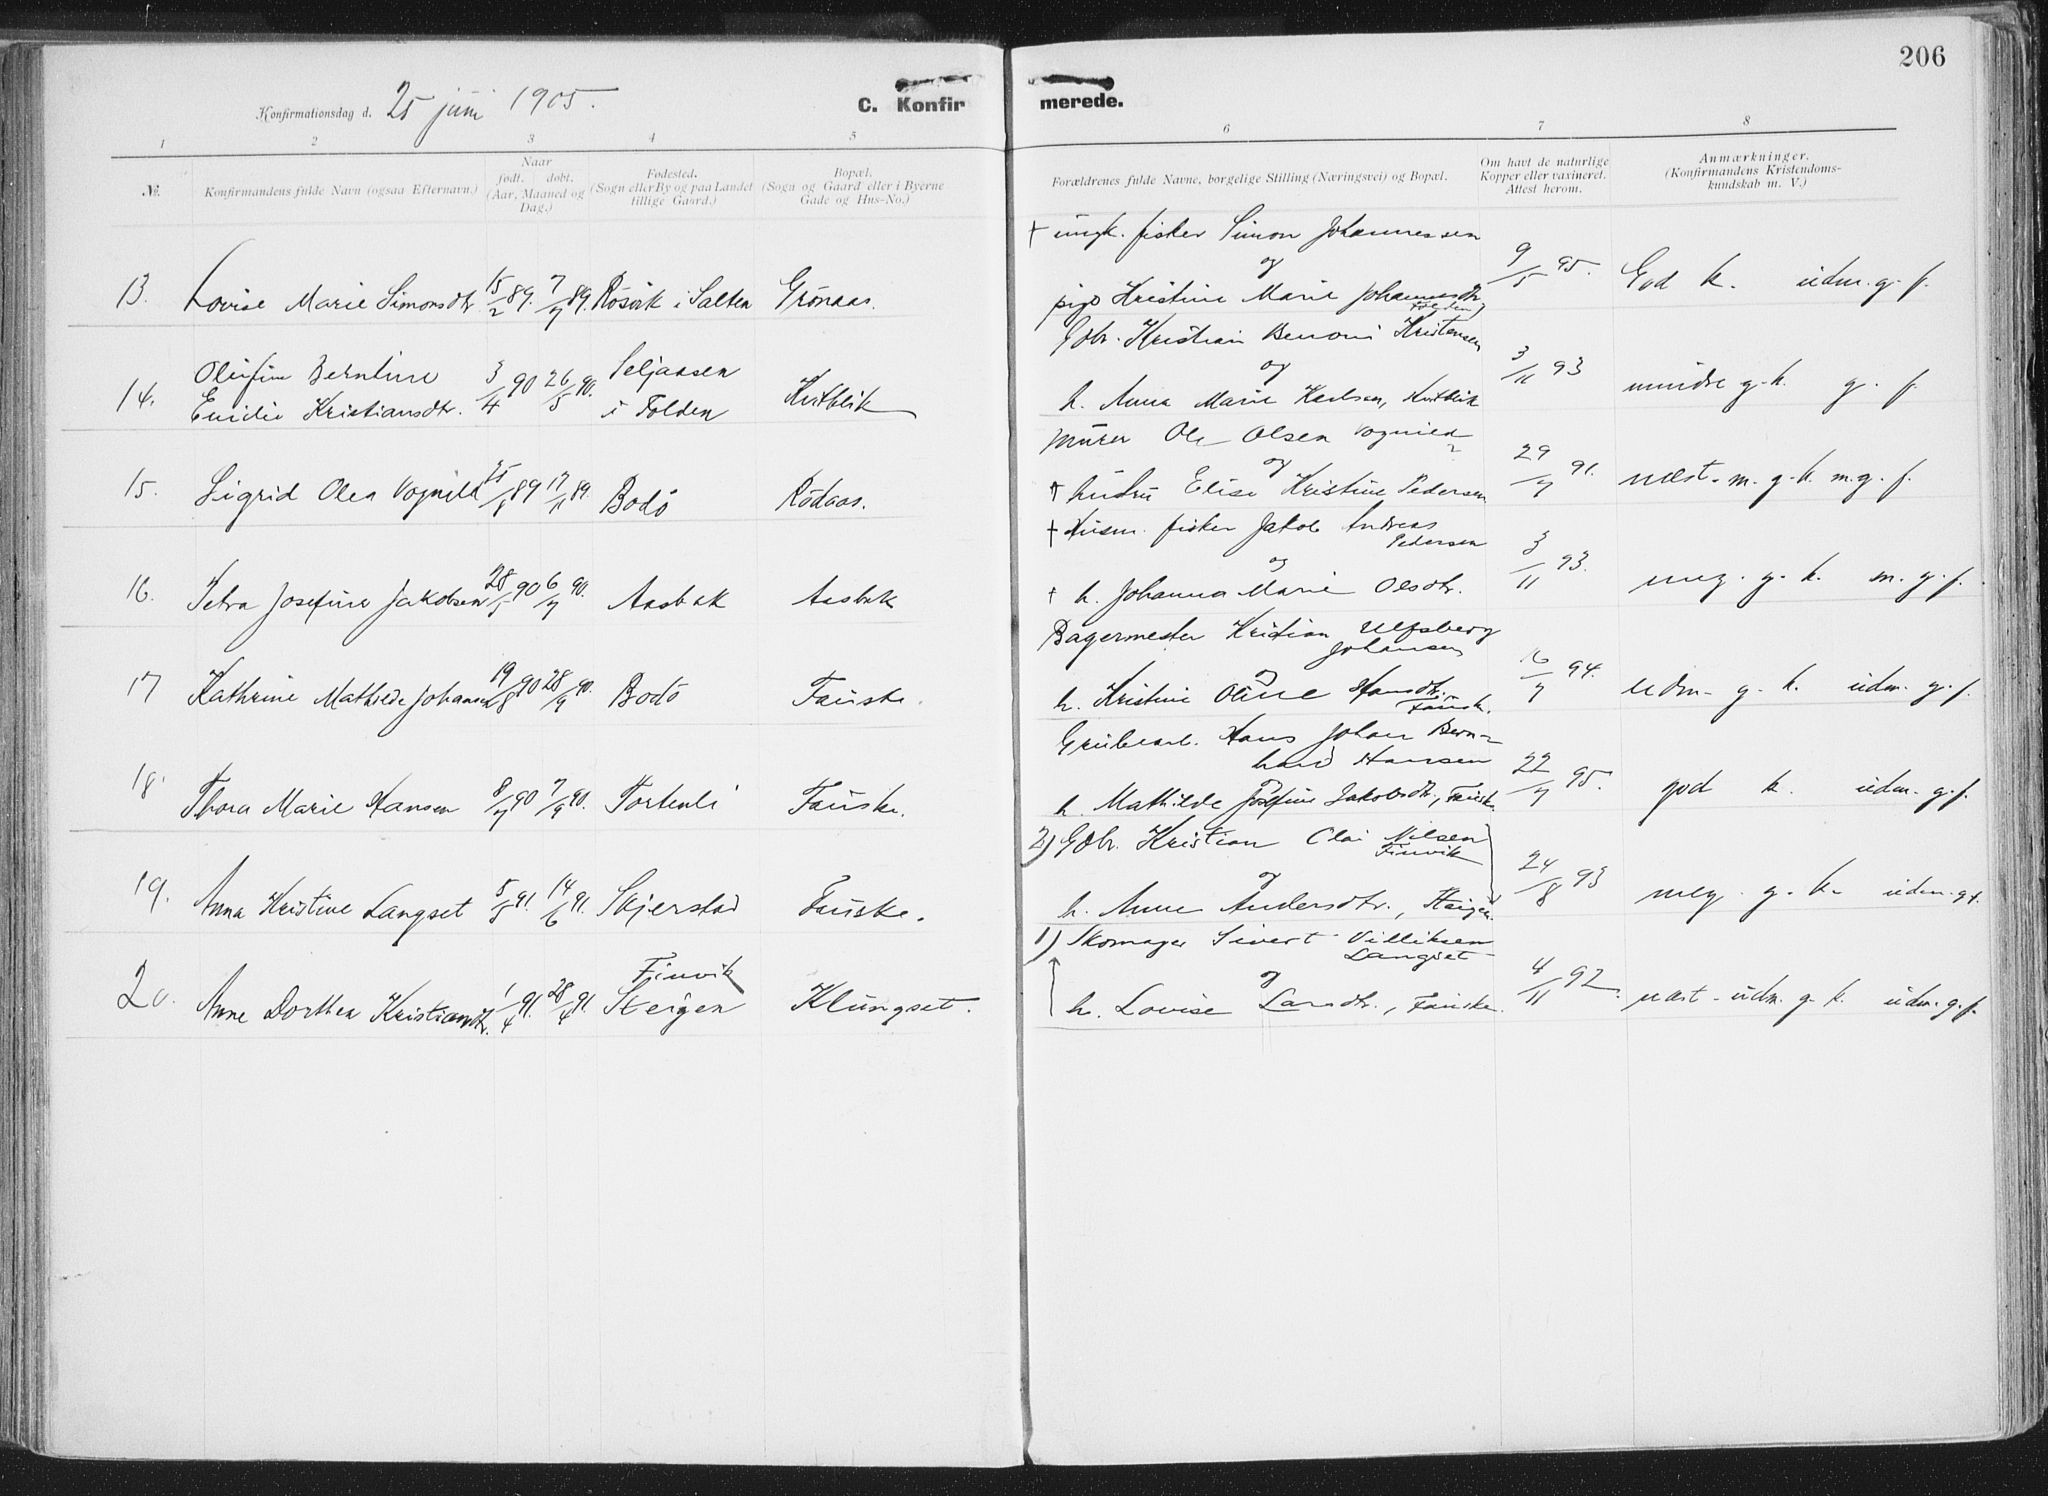 206
Konfirmationsdag d. 25 juni 1905.
C. Konfirmerede.
1 2 3 4 5 6 7 8
No.
Konfirmandens fulde Navn (ogsaa Efternavn.)
Naar
født. døbt.
(Aar, Maaned og
Dag.)
Fødested.
(Sogn eller By og paa Landet
tillige Gaard.)
Bopæl.
(Sogn og Gaard eller i Byerne
Gade og Hus-No.)
Forældrenes fulde Navne, borgelige Stilling (Næringsvei) og Bopæl.
Om havt de naturlige
Kopper eller vaxineret.
Attest herom.
Anmærkninger.
(Konfirmandens Kristendoms-
kundskab m. V.)
† ungk. fisker Simon Johannessen
og
13. Lovise Marie Simonsdtr. 15/2 89. 7/7 89. Rösvik i Salten Grönaas.
pige Kristine Marie Johannesdtr.
Folden
9/5 95. God k. udm. g. f.
Gdbr. Kristian Benoni Kristensen
og
14. Olufine Berntine
Emilie Kristiansdtr. 3/4 90 26/5 90. Seljaasen
i Folden Kvitblik
h. Anna Marie Karlsen, Kvitblik
3/11 93 mindre g. k. g. f.
Murer Ole Olsen Vognild
og
15. Sigrid Olea Vognild 25/8 89 17/11 89. Bodö Rödaas.
† hustru Elise Kristine Pedersen
29/7 91. næst. m. g. k. m. g. f.
† Husm. fisker Jakob Andreas
Pedersen
og
16. Petra Josefine Jakobsen 28/5 90 6/7 90. Aasbak Aasbak
† h. Johanna Marie Olsdtr.
3/11 93. meg. g. k. m. g. f.
Bagermester Kristian Ulfsberg
Johansen
og
17 Kathrine Mathilde Johansen 19/8 90 28/9 90. Bodö Fauske.
h. Kristine Oline Hansdtr.
Fausk.
16/7 94. udm. g. k. udm. g. f.
Grubearb. Hans Johan Bern-
hard Hansen
og
18. Thora Marie Hansen 8/7 90 7/9 90. Tortenli Fauske.
h. Mathilde Josefine Jakobsdtr., Fauske
22/7 95. god k. udm. g. f.
2) Gdbr. Kristian Olai Nilsen
Finvik
og
19. Anna Kristine Langset 5/5 91. 14/6 91. Skjerstad Fauske.
h. Anne Andersdtr., Steigen.
24/8 93 meg. g. k. udm. g. f.
1) Skomager Sivert Villiksen
Langset
og
20. Anne Dorthea Kristiansdtr. 1/4 91. 28/4 91. Finvik
Steigen Klungset.
h. Lovise Larsdtr., Fauske.
4/11 92. næst. udm. g. k. udm. g. f.